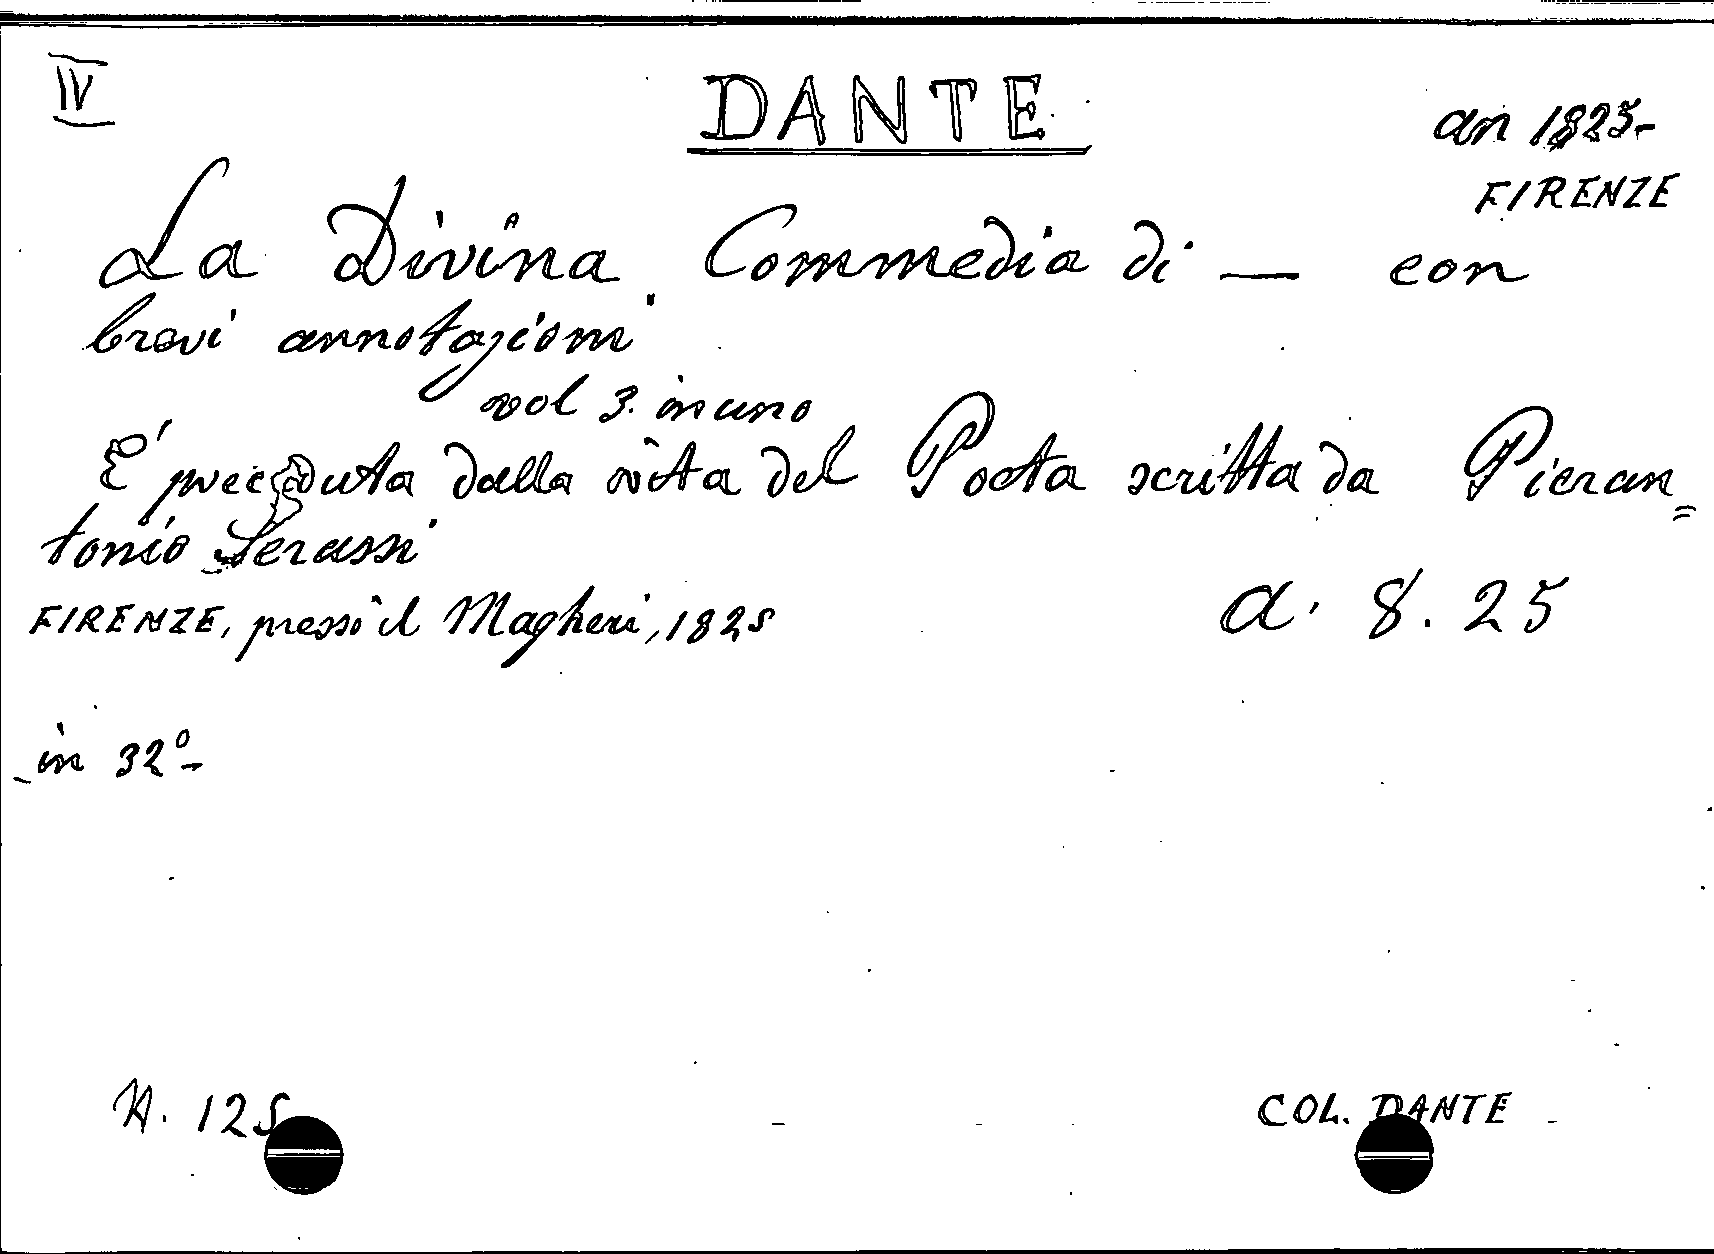 IV
DANTE
an 1825-
FIRENZE
La Divina Commedia di — con
brevi annotazioni
vol 3. in uno
E' preceduta dalla vita del Poeta scritta da Pieran=
tonio Serassi
FIRENZE, presso il Magheri, 1825
a. 8. 25
in 32°-
N. 125
COL. DANTE